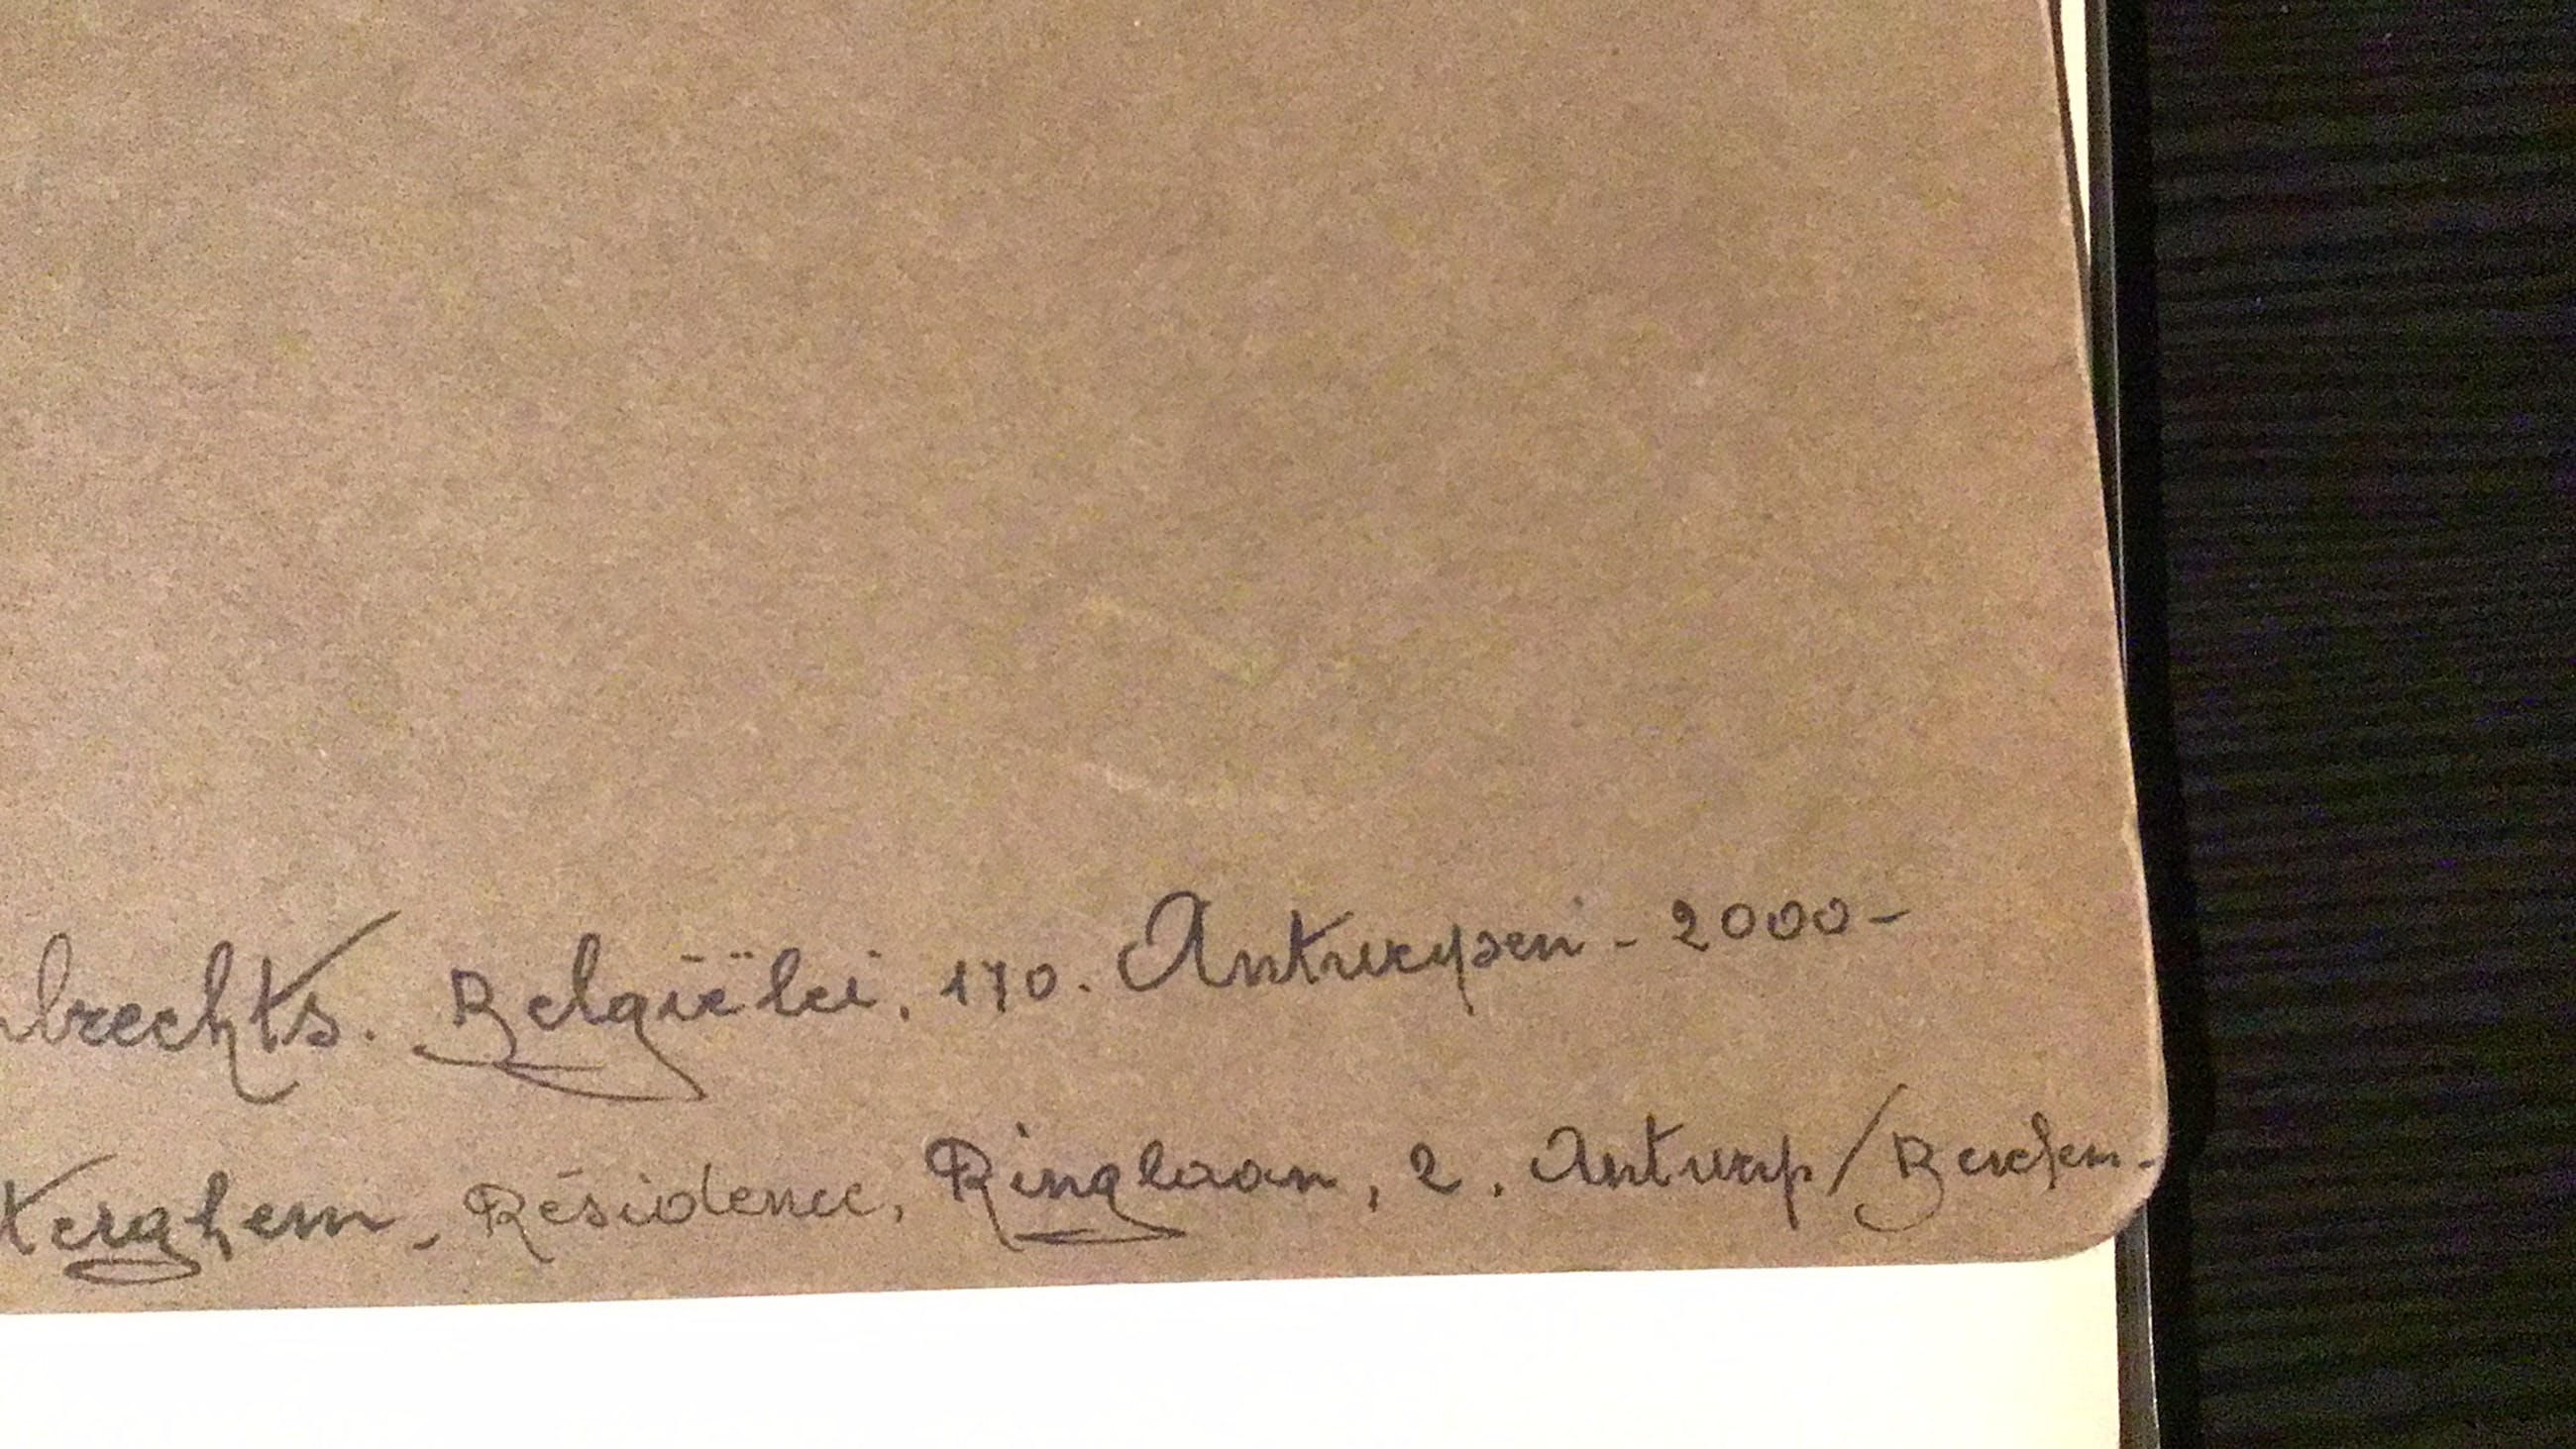 brechts. Belgiëlei, 170. Antwerpen - 2000-
Kerghem - Résidence, Ringlaan, 2. Antwerp/Berchem-